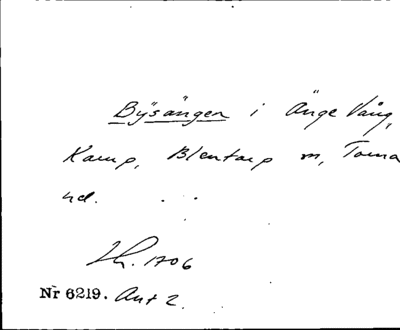 Bÿsängen i Änge Vång,
Kamp, Blentarp m, Torna
hd.
Lh. 1706
Nr 6219. Akt 2.